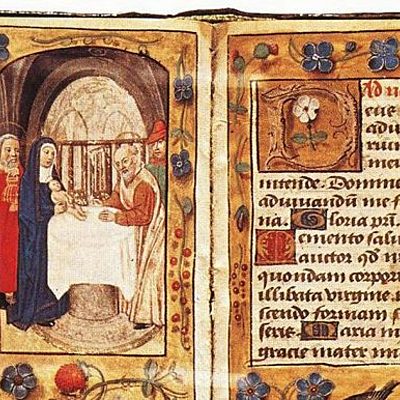 Ad
Deus
adiu
rium
meu
intende. Domine
adiuvandum me f
na. Gloria pri.
Memento salu
auctor qd n
quondam corpor
illibata virgine
scendo formam s
seris. Maria m
gracie mater mi